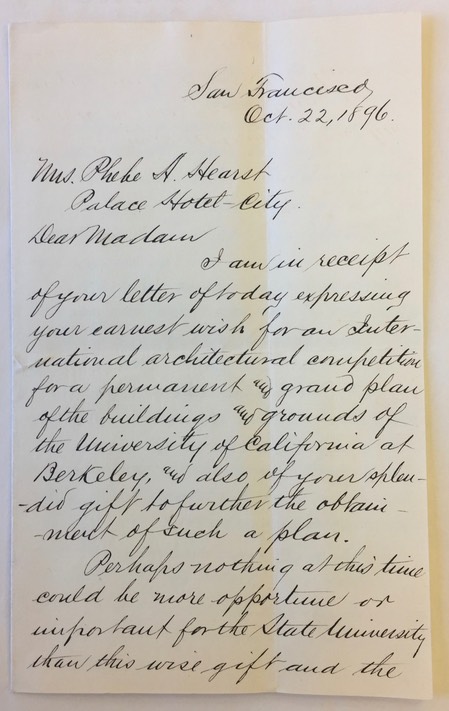 San Francisco,
Oct. 22, 1896.
Mrs. Phebe A. Hearst
Palace Hotel-City.
Dear Madam
I am in receipt
of your letter of today expressing
your earnest wish for an Inter-
national architectural competition
for a permanent and grand plan
of the buildings and grounds of
the University of California at
Berkeley, and also, of your splen-
-did gift to further the obtain-
-ment of such a plan.
Perhaps nothing at this time
could be more opportune or
important for the State University
than this wise gift and the